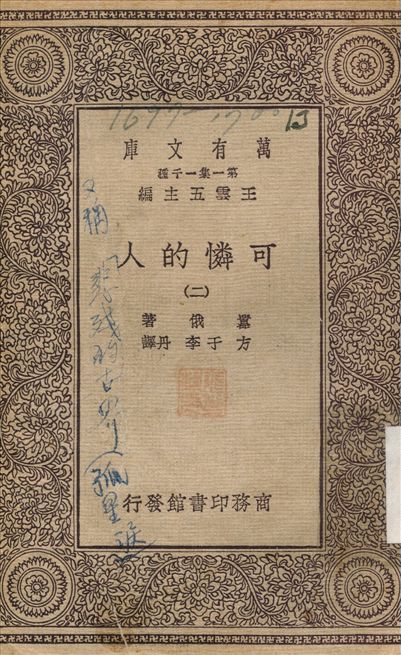 13
萬有文庫
第一集一千種
王雲五主編
可憐的人
(二)
囂俄著
方于李丹譯
商務印書館發行
又稱
孤星淚